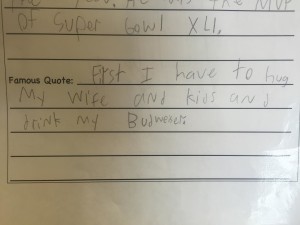 the MVP
Of Super bowl XLI.
Famous Quote: First I have to hug
My wife and kids and
drink my Budweisers